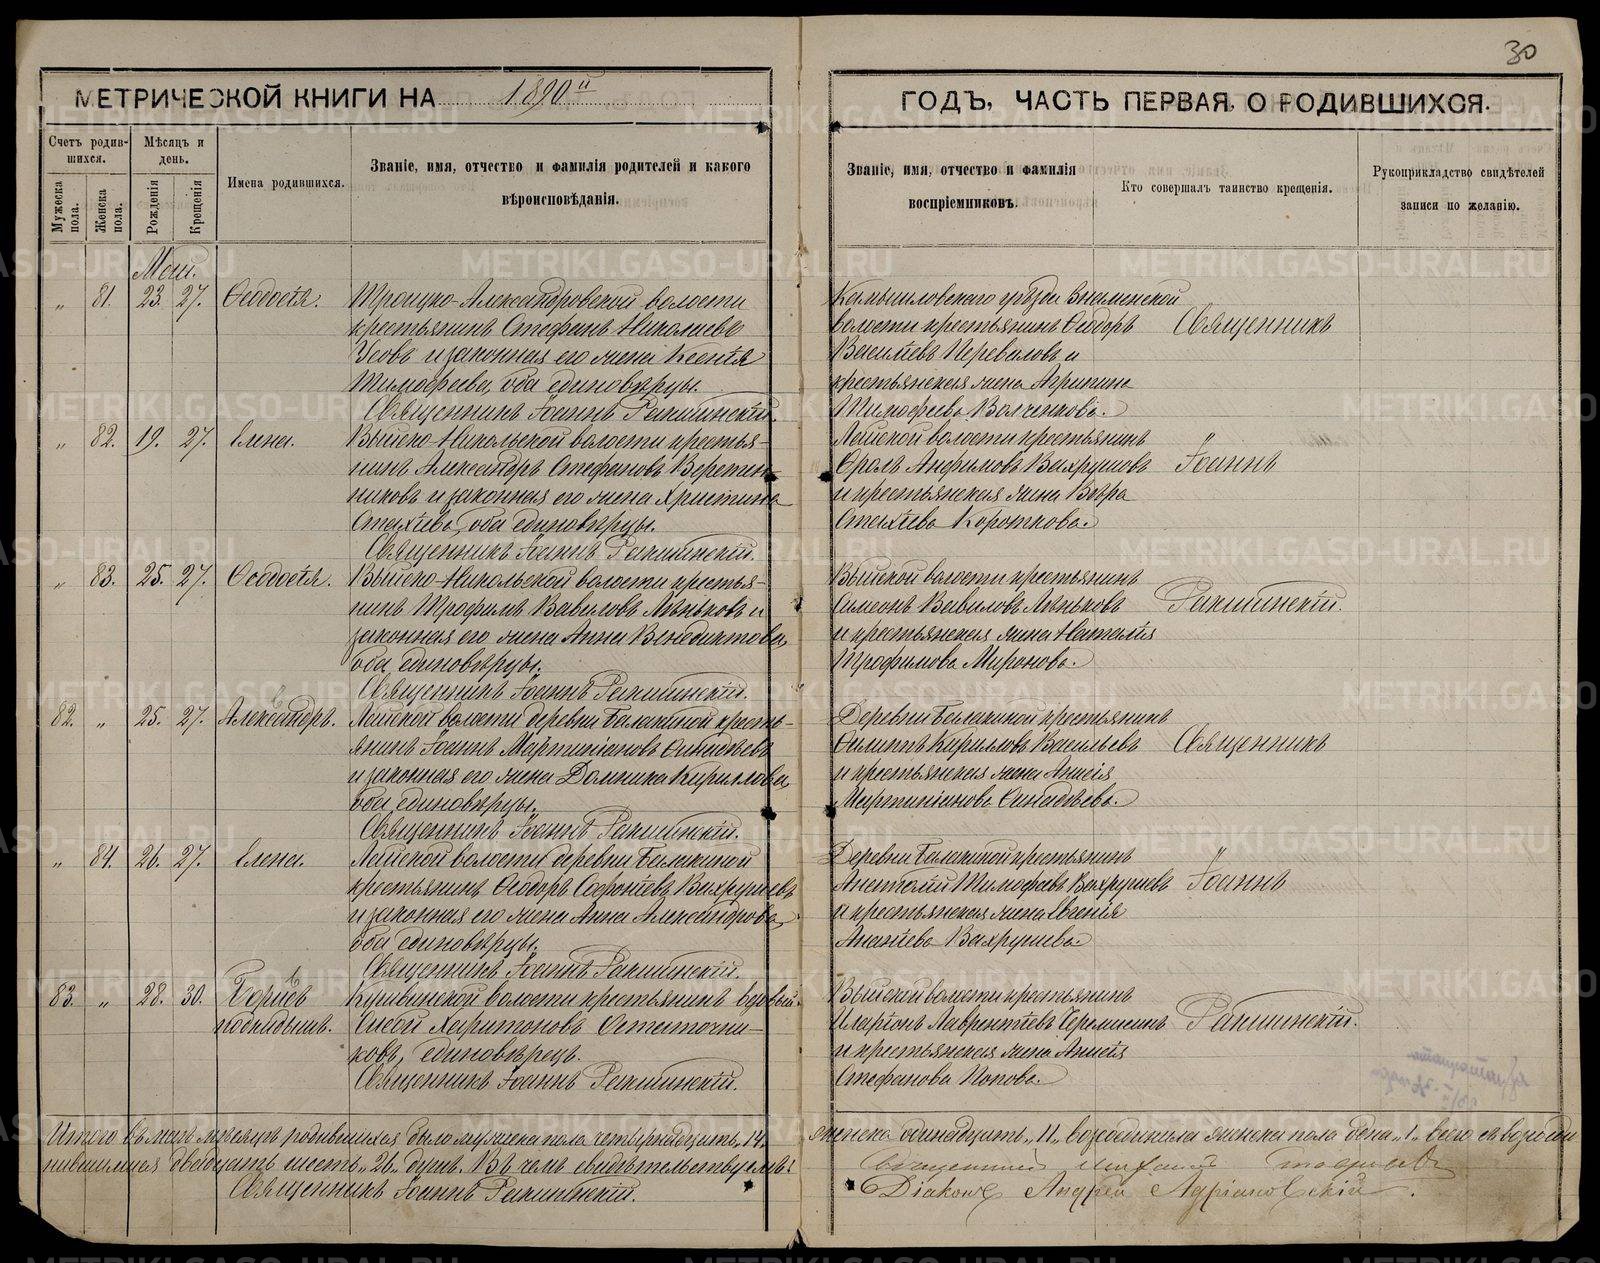 30
МЕТРИЧЕСКОЙ КНИГИ НА 1890 й ГОДЪ, ЧАСТЬ ПЕРВАЯ, О РОДИВШИХСЯ.
Счетъ родившихся.
Мужеска пола.
Женска пола.
Мѣсяцъ и день.
Рожденія
Крещенія
Имена родившихся.
Званіе, имя, отчество и фамилія родителей и какого вѣроисповѣданія.
Званіе, имя, отчество и фамилія воспріемниковъ.
Кто совершалъ таинство крещенія.
Рукоприкладство свидѣтелей записи по желанію.
Маія.
„ 81. 23. 27. Ѳеодосія.
Троицко-Александровской волости
крестьянинъ Стефанъ Николаевъ
Усовъ и законная его жена Ксенія
Тимофеева, оба единовѣрцы.
Священникъ Іоаннъ Ракшинскій.
Камышловскаго уѣзда Знаменской
волости крестьянинъ Ѳеодоръ
Васильевъ Переваловъ и
крестьянская жена Агрипина
Тимофеева Волченкова.
Священникъ
„ 82. 19. 27. Елена.
Выйско-Никольской волости крестья-
нинъ Александръ Стефановъ Веретен-
никовъ и законная его жена Христина
Стахіева, оба единовѣрцы.
Священникъ Іоаннъ Ракшинскій.
Лайской волости крестьянинъ
Фролъ Анфимовъ Вахрушовъ
и крестьянская жена Вѣра
Стахіева Короткова.
Іоаннъ
„ 83. 25. 27. Ѳеодосія.
Выйско-Никольской волости крестья-
нинъ Трофимъ Вавиловъ Лѣньковъ и
законная его жена Анна Венедиктова,
оба единовѣрцы.
Священникъ Іоаннъ Ракшинскій.
Выйской волости крестьянинъ
Симеонъ Вавиловъ Лѣньковъ
и крестьянская жена Наталія
Трофимова Миронова.
Ракшинскій.
82. „ 25. 27. Александръ.
Лайской волости деревни Балакиной кресть-
янинъ Іоаннъ Мартиніановъ
и законная его жена Домника Кириллова,
оба единовѣрцы.
Священникъ Іоаннъ Ракшинскій.
Деревни Балакиной крестьянинъ
Филиппъ Кирилловъ Васильевъ
и крестьянская жена Анисія
Мартиніанова
Священникъ
„ 84. 26. 27. Елена.
Лайской волости деревни Балакиной
крестьянинъ Ѳеодоръ Софроніевъ Вахрушевъ
и законная его жена Анна Александрова,
оба единовѣрцы.
Священникъ Іоаннъ Ракшинскій.
Деревни Балакиной крестьянинъ
Анатолій Тимофеевъ Вахрушевъ
и крестьянская жена Евгенія
Ананіева Вахрушева.
Іоаннъ
83. „ 28. 30. Борисъ
подкидышъ.
Кушвинской волости крестьянинъ вдовый
Харитоновъ Остаточни-
ковъ, единовѣрецъ.
Священникъ Іоаннъ Ракшинскій.
Выйской волости крестьянинъ
Иларіонъ Лаврентіевъ Черемисинъ
и крестьянская жена Анисія
Стефанова Попова.
Ракшинскій.
Итого въ маѣ мѣсяцѣ родившихся было мужеска пола четырнадцать „14“
женска одинадцать „11“, возсоединена женска пола одна „1“, всего съ возсоеди
нившимися двадцать шесть „26“ душъ. Въ чемъ свидѣтельствуемъ:
Священникъ Іоаннъ Ракшинскій.
Діаконъ Андрей Адріановскій.
METRIKI.GASO-URAL.RU